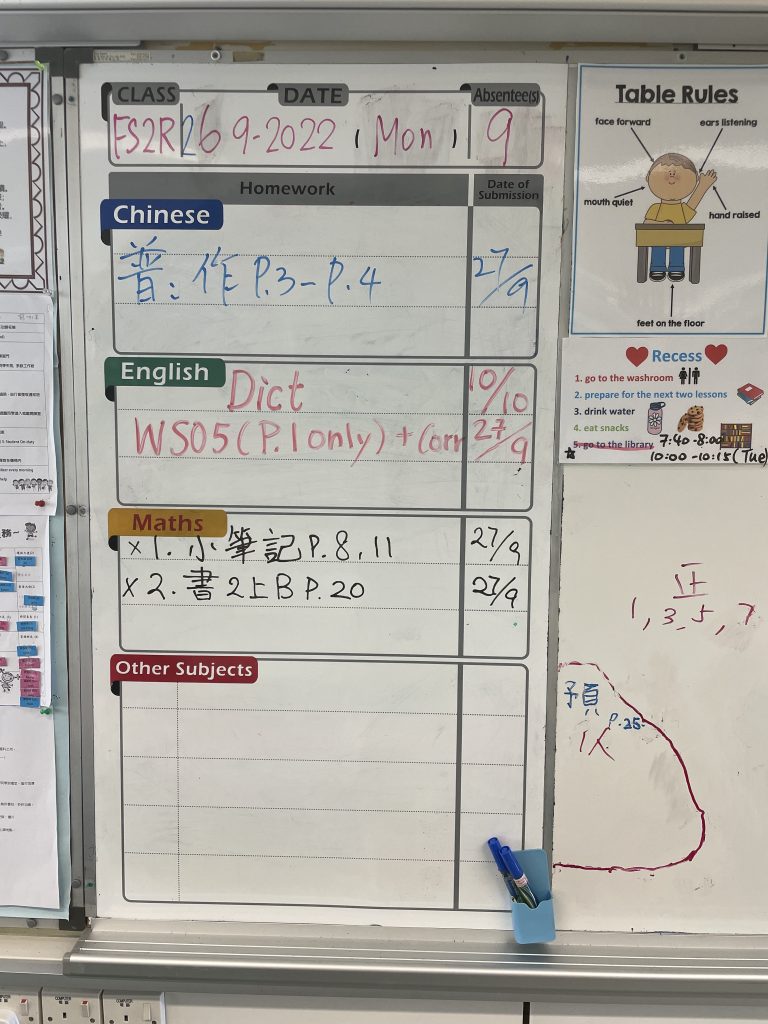 CLASS DATE Absentee(s)
26 9-2022 (Mon) 9
Homework Date of Submission
Chinese
普: 作 P.3-P.4 27/9
English
Dict 10/10
WS05(P.1 only) + Corr 27/9
Maths
x 1. 小筆記 P.8, 11 27/9
x 2. 書2上B P.20 27/9
Other Subjects
Table Rules
face forward
ears listening
mouth quiet
hand raised
feet on the floor
Recess
1. go to the washroom
2. prepare for the next two lessons
3. drink water
4. eat snacks
5. go to the library 7:40-8:00
10:00-10:15 (Tue)
正
1, 3, 5, 7
預
P.25
1人